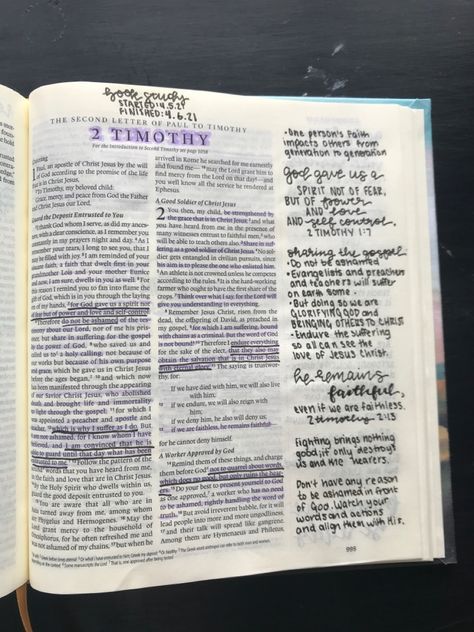 book study
STARTED: 4.5.21
FINISHED: 4.6.21
THE SECOND LETTER OF PAUL TO TIMOTHY
2 TIMOTHY
For the introduction to Second Timothy see page 1058
Greeting
Paul, an apostle of Christ Jesus by the will
of God according to the promise of the life
that is in Christ Jesus,
To Timothy, my beloved child:
Grace, mercy, and peace from God the Father
and Christ Jesus our Lord.
Guard the Deposit Entrusted to You
I thank God whom I serve, as did my ances-
with a clear conscience, as I remember you
constantly in my prayers night and day. 4 As I
remember your tears, I long to see you, that I
may be filled with joy. 5 I am reminded of your
sincere faith, a faith that dwelt first in your
grandmother Lois and your mother Eunice
and now, I am sure, dwells in you as well. 6 For
this reason I remind you to fan into flame the
gift of God, which is in you through the laying
on of my hands, 7 for God gave us a spirit not
of fear but of power and love and self-control.
8 Therefore do not be ashamed of the testi-
mony about our Lord, nor of me his prison-
er, but share in suffering for the gospel
by the power of God, 9 who saved us and
called us to a holy calling, not because of
our works but because of his own purpose
and grace, which he gave us in Christ Jesus
before the ages began, 10 and which now
has been manifested through the appearing
of our Savior Christ Jesus, who abolished
death and brought life and immortality
to light through the gospel, 11 for which I
was appointed a preacher and apostle and
teacher, 12 which is why I suffer as I do. But
I am not ashamed, for I know whom I have
believed, and I am convinced that he is
able to guard until that day what has been
entrusted to me. 13 Follow the pattern of the
sound words that you have heard from me,
in the faith and love that are in Christ Jesus.
14 By the Holy Spirit who dwells within us,
guard the good deposit entrusted to you.
15 You are aware that all who are in
Asia turned away from me, among whom
are Phygelus and Hermogenes. 16 May the
Lord grant mercy to the household of
Onesiphorus, for he often refreshed me and
was not ashamed of my chains, 17 but when he
arrived in Rome he searched for me earnestly
and found me— 18 may the Lord grant him to
find mercy from the Lord on that day!—and
you well know all the service he rendered at
Ephesus.
A Good Soldier of Christ Jesus
2 You then, my child, be strengthened by
the grace that is in Christ Jesus, 2 and what
you have heard from me in the presence of
many witnesses entrust to faithful men, who
will be able to teach others also. 3 Share in suf-
fering as a good soldier of Christ Jesus. 4 No sol-
dier gets entangled in civilian pursuits, since
his aim is to please the one who enlisted him.
5 An athlete is not crowned unless he competes
according to the rules. 6 It is the hard-working
farmer who ought to have the first share of the
crops. 7 Think over what I say, for the Lord will
give you understanding in everything.
8 Remember Jesus Christ, risen from the
dead, the offspring of David, as preached in
my gospel, 9 for which I am suffering, bound
with chains as a criminal. But the word of God
is not bound! 10 Therefore I endure everything
for the sake of the elect, that they also may
obtain the salvation that is in Christ Jesus
with eternal glory. 11 The saying is trustwor-
thy, for:
If we have died with him, we will also live
with him;
12 if we endure, we will also reign with
him;
if we deny him, he also will deny us;
13 if we are faithless, he remains faithful—
for he cannot deny himself.
A Worker Approved by God
14 Remind them of these things, and charge
them before God not to quarrel about words,
which does no good, but only ruins the hear-
ers. 15 Do your best to present yourself to God
as one approved, a worker who has no need
to be ashamed, rightly handling the word of
truth. 16 But avoid irreverent babble, for it will
lead people into more and more ungodliness,
17 and their talk will spread like gangrene.
Among them are Hymenaeus and Philetus,
999
• One person's faith
impacts others from
generation to generation
God gave us a
SPIRIT NOT OF FEAR,
BUT OF power
AND love
AND self control.
2 TIMOTHY 1:7
sharing the gospel
• Do not be ashamed
• Evangelists and preachers
and teachers will suffer
on earth some.
• But doing so we are
GLORIFYING GOD and
BRINGING OTHERS TO CHRIST
• Endure the suffering
so all can see the
love of Jesus Christ.
he remains
faithful,
even if we are faithless.
2 timothy 2:13
Fighting brings nothing
good; it only destroys
us and the hearers.
Don't have any reason
to be ashamed in front
of God. Watch your
words and actions
and align them with His.